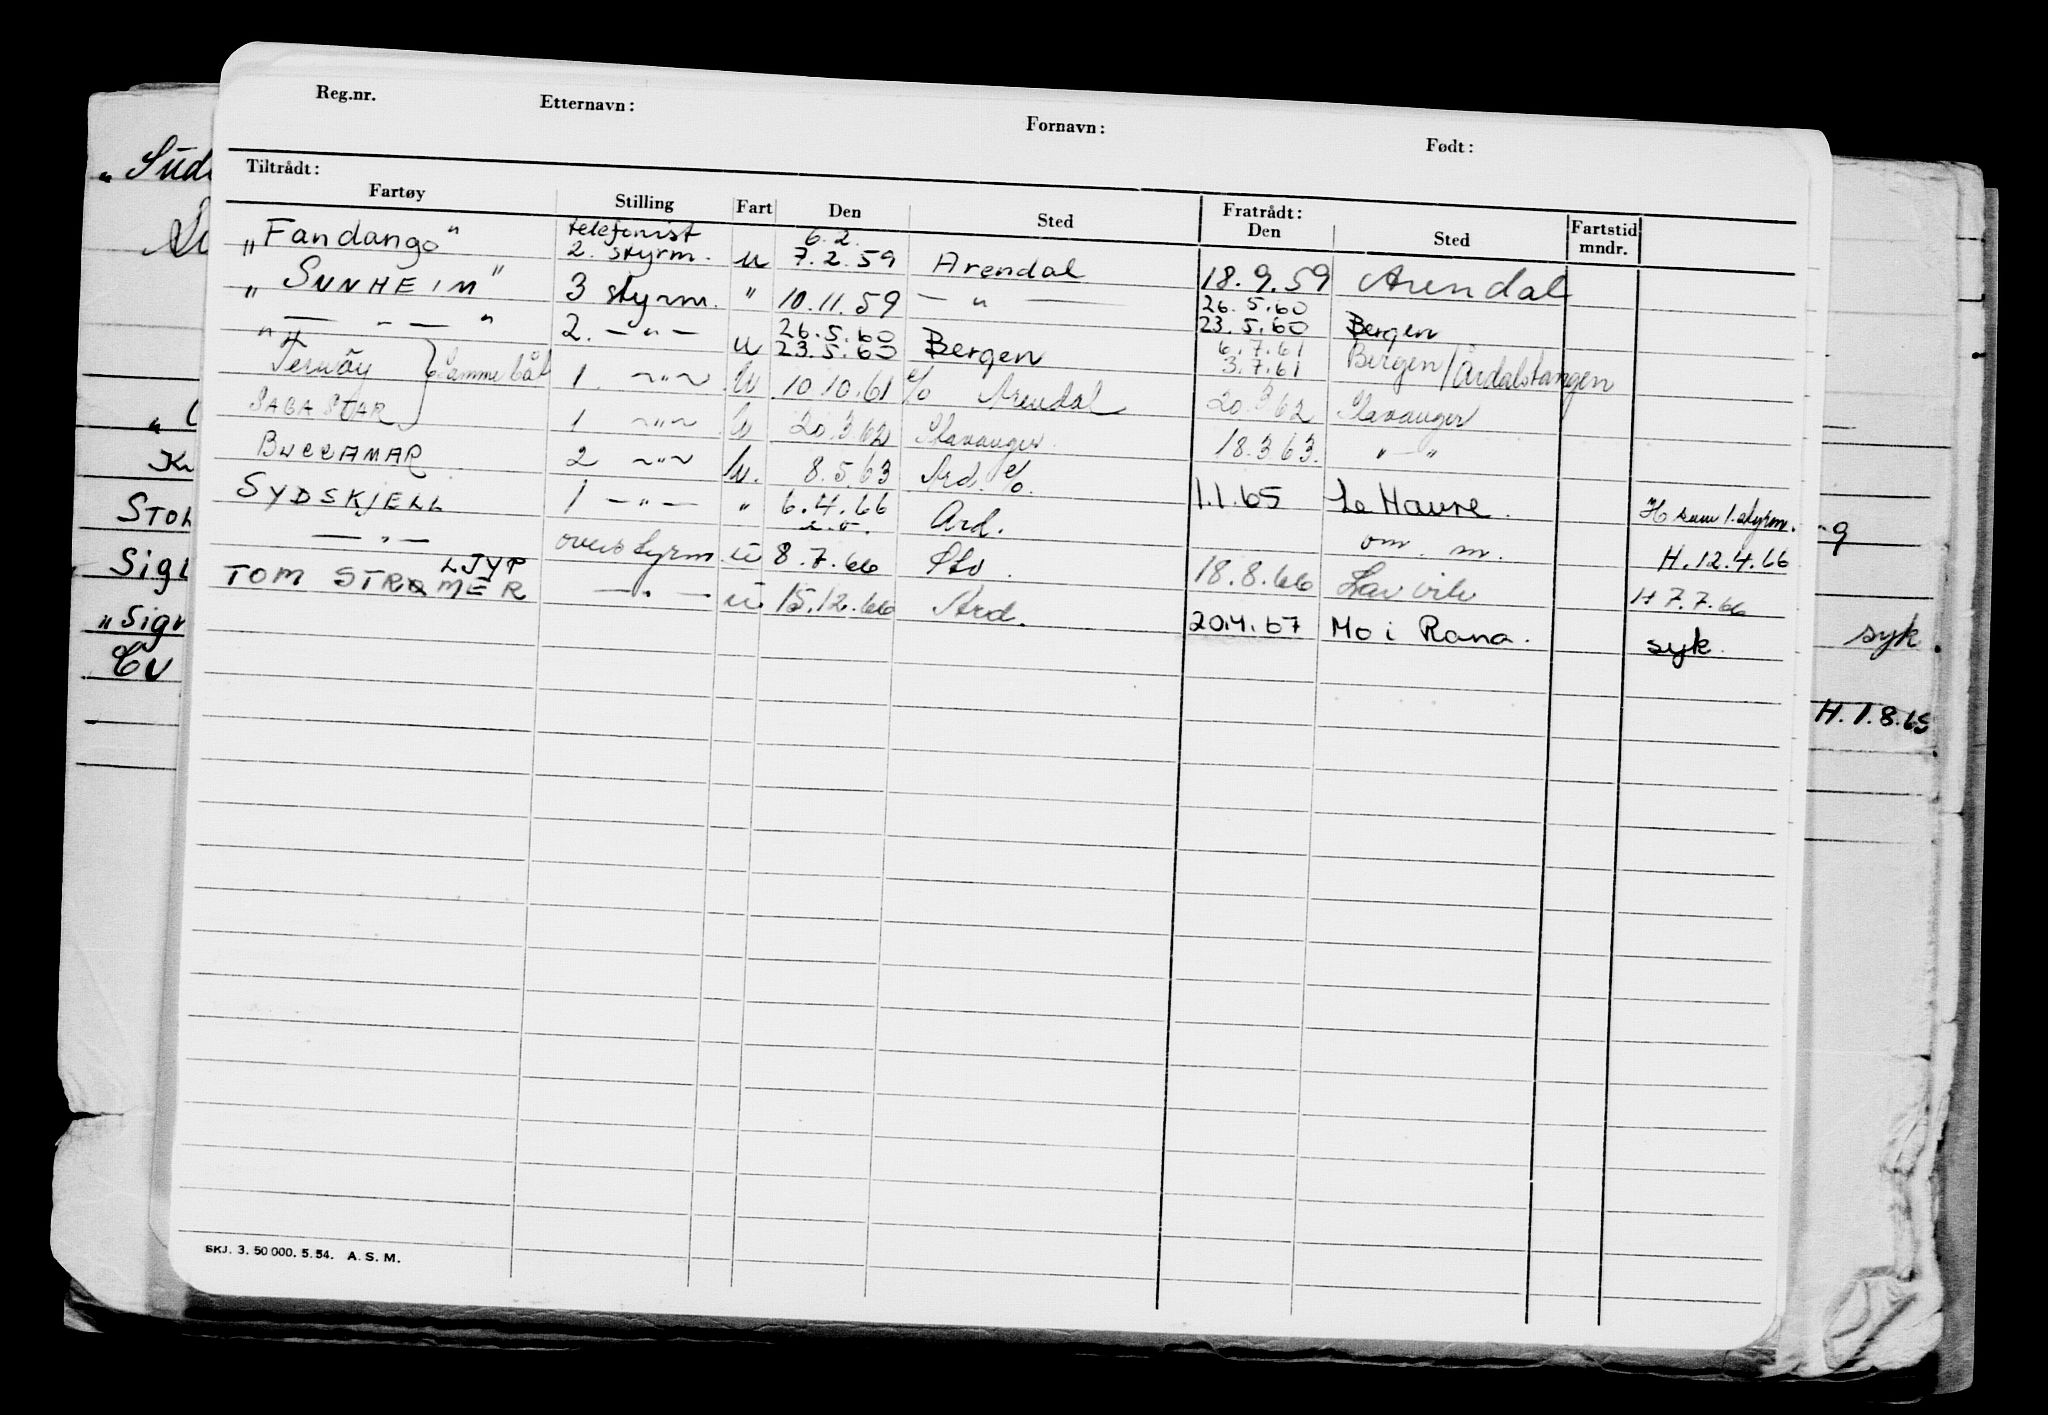 Reg.nr. Etternavn: Fornavn: Født:
Tiltrådt: Fratrådt:
Fartøy Stilling Fart Den Sted Den Sted Fartstid mndr.
telefonist 6.2.
„Fandango" 2. styrm. u 7.2.59 Arendal 18.9.59 Arendal
„SUNHEIM" 3 styrm. " 10.11.59 — " — 26.5.60 23.5.60 Bergen
" — " — " 2. — " — u 26.5.60 23.5.60 Bergen 6.7.61 3.7.61 Bergen/Årdalstangen
Ternöy } Samme båt 1. ~"~ u 10.10.61 c/o Arendal 20.3.62 Stavanger
SAGA STAR 1 ~"~ u 20.3.62 Stavanger 18.3.63. " — "
BUCCAMAR 2 ~"~ u. 8.5.63 Ard. c/o. 1.1.65 Le Havre. H som 1. styrm.
SYDSKJELL 1 — " — " 6.4.66 Ard. om. m. H. 12.4.66
— " — overstyrm. u 8.7.66 18.8.66 Larvik H 7.7.66
LJYP
TOM STRØMER — " — u 15.12.66 Ard. 20.4.67 Mo i Rana. syk.
SKJ. 3. 50 000. 5. 54. A. S. M.
„Süd
„
K
STOL
Sigl
„Sign
g
syk.
H. 1.8.65